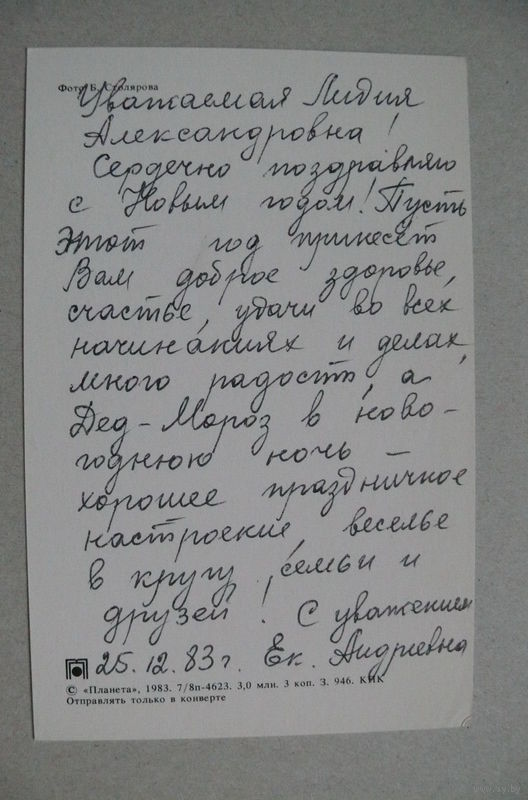 Фото Б. Столярова
Уважаемая Лидия
Александровна!
Сердечно поздравляю
с Новым годом! Пусть
этот год принесёт
Вам доброе здоровье,
счастье, удачи во всех
начинаниях и делах,
много радости, а
Дед-Мороз в ново-
годнюю ночь –
хорошее праздничное
настроение, веселье
в кругу семьи и
друзей! С уважением
25.12.83г. Ек. Андреевна
© «Планета», 1983. 7/8п-4623. 3,0 млн. 3 коп. З. 946. КИК
Отправлять только в конверте
www.ay.by